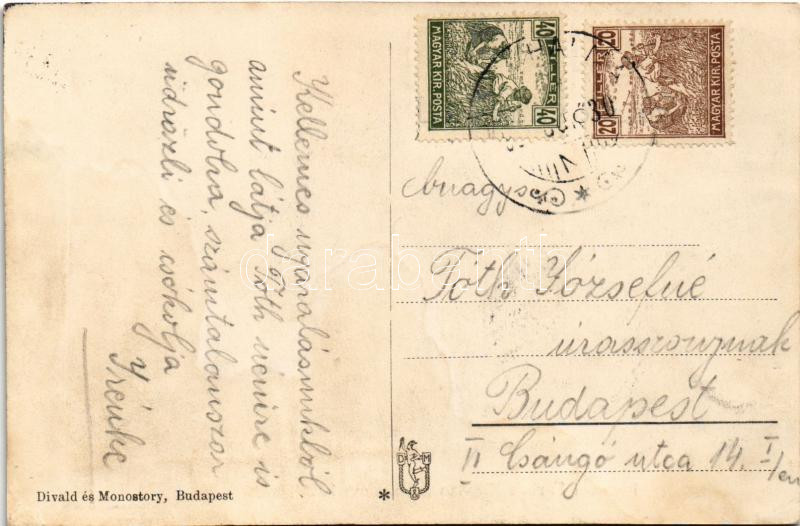 Kellemes nyaralásunkból.
amint látja Tóth nénire is
gondolva, számtalanszor
üdvözli és csókolja
Irénke
Divald és Monostory, Budapest
*
D M
40 FILLÉR 40
MAGYAR KIR. POSTA
20 FILLÉR 20
MAGYAR KIR. POSTA
Tóth Józsefné
úrasszonynak
Budapest
II Csángó utca 14. I/em
darabanth